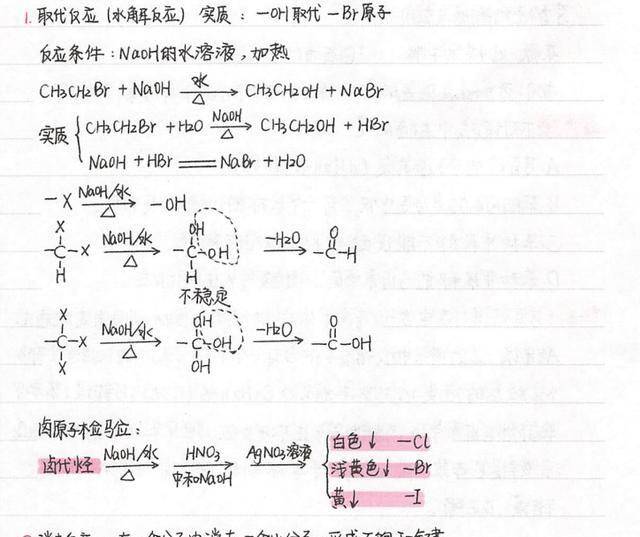 1. 取代反应 (水解反应) 实质: —OH取代 —Br原子
反应条件: NaOH的水溶液, 加热
CH3CH2Br + NaOH 水 △ CH3CH2OH + NaBr
实质
CH3CH2Br + H2O NaOH △ CH3CH2OH + HBr
NaOH + HBr === NaBr + H2O
—X NaOH/水 △ —OH
X —C—X H NaOH/水 △ OH —C—OH H —H2O O —C—H
不稳定
X —C—X X NaOH/水 △ OH —C—OH OH —H2O O —C—OH
卤原子检验:
卤代烃 NaOH/水 △ HNO3 中和NaOH AgNO3溶液
白色↓ —Cl
浅黄色↓ —Br
黄↓ —I